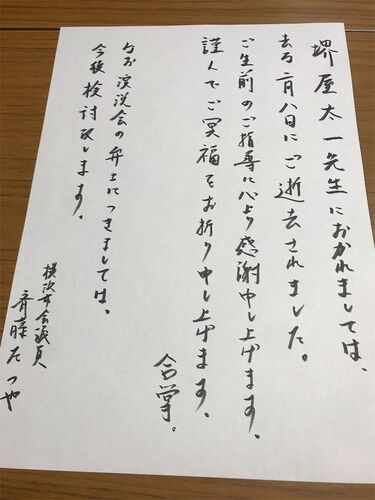 堺屋太一先生におかれましては、
去る二月八日にご逝去されました。
ご生前のご指導に心より感謝申し上げます。
謹んでご冥福をお祈り申し上げます。
合掌。
なお演説会の弁士につきましては、
今後検討致します。
横浜市会議員
斉藤たつや